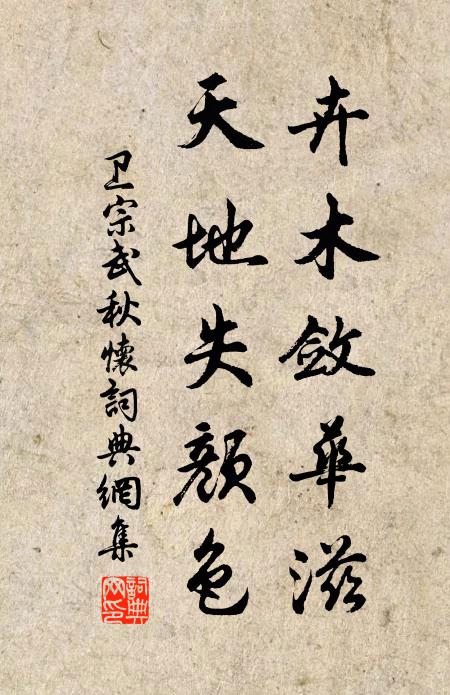 卉木斂華滋
天地失顏色
卫宗武秋懷詞典網集
詞典網印